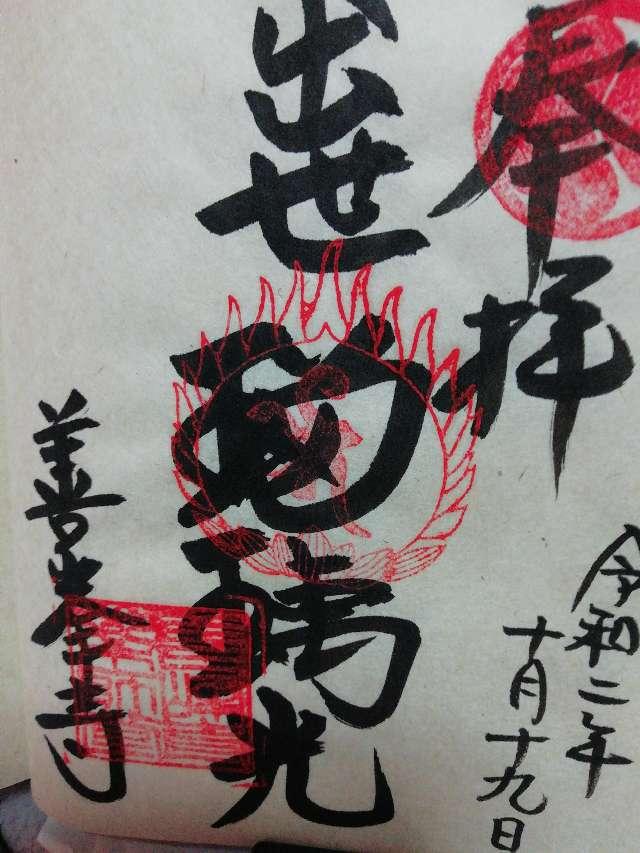 奉拝
令和二年
十月十九日
出世
瑞光
善峯寺